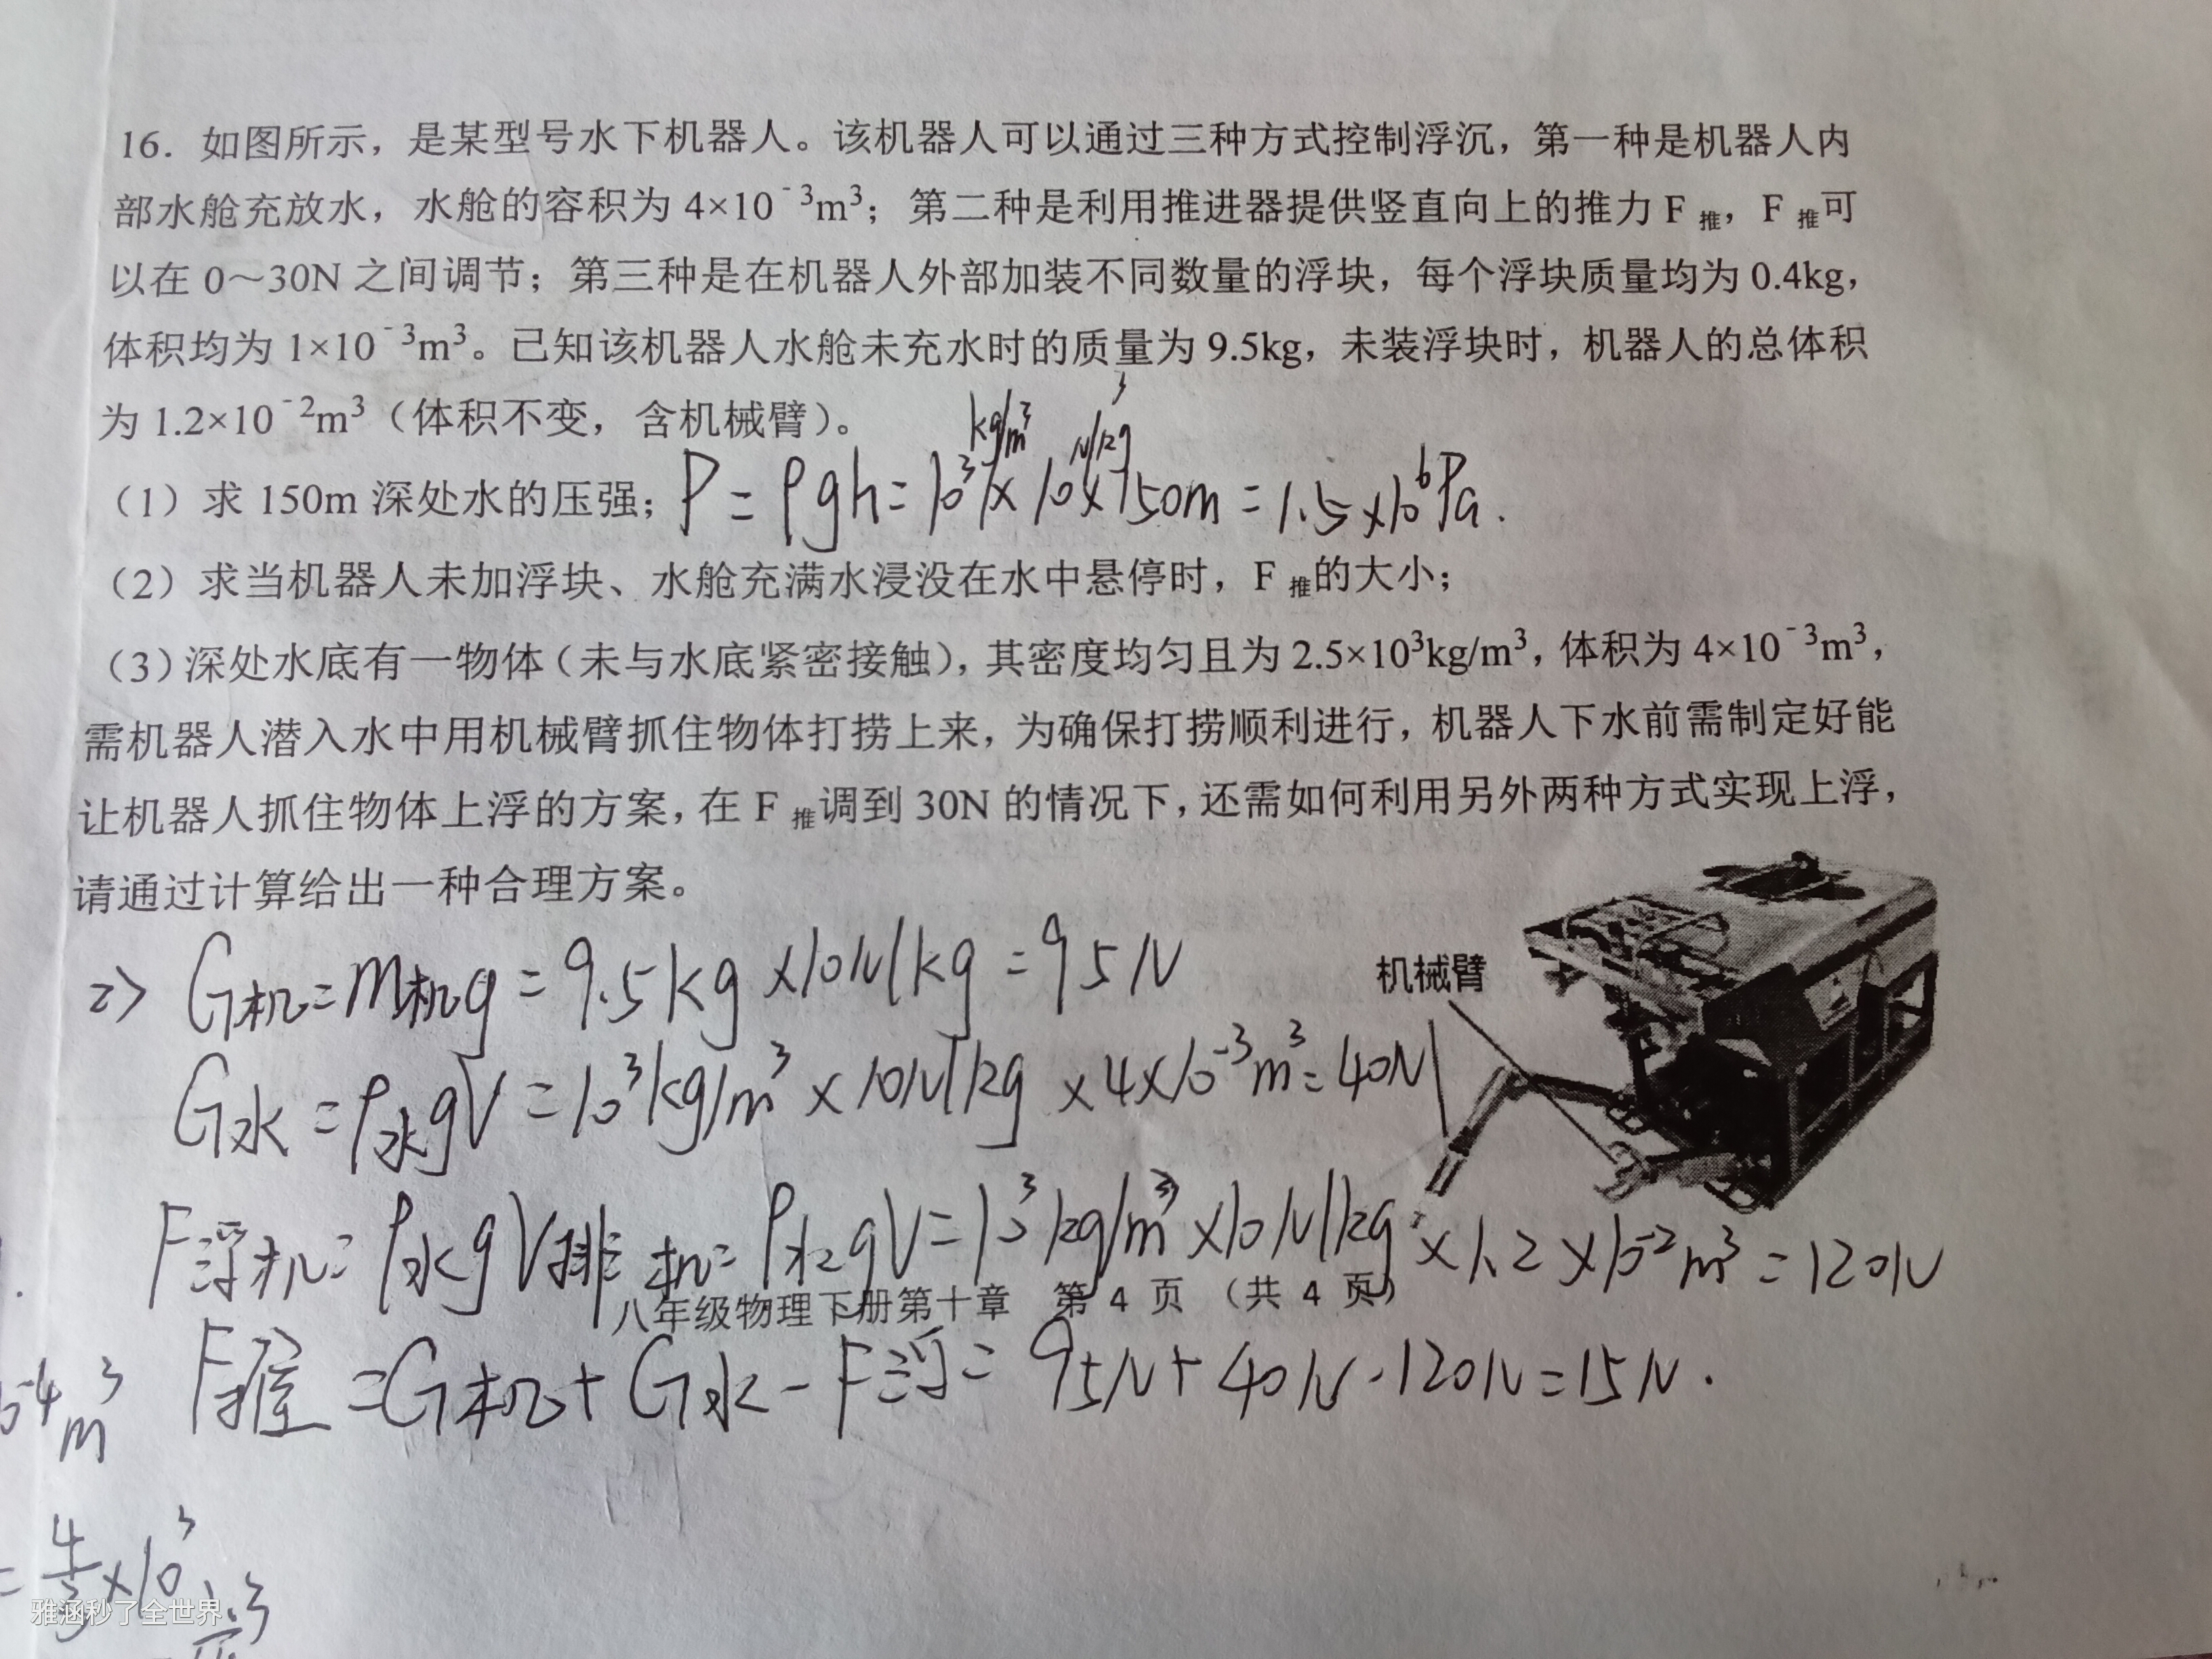 16．如图所示，是某型号水下机器人。该机器人可以通过三种方式控制浮沉，第一种是机器人内
部水舱充放水，水舱的容积为 4×10⁻³m³；第二种是利用推进器提供竖直向上的推力 F推，F推可
以在 0～30N 之间调节；第三种是在机器人外部加装不同数量的浮块，每个浮块质量均为 0.4kg，
体积均为 1×10⁻³m³。己知该机器人水舱未充水时的质量为 9.5kg，未装浮块时，机器人的总体积
为 1.2×10⁻²m³（体积不变，含机械臂）。
（1）求 150m 深处水的压强；P=ρgh=10³kg/m³×10N/kg×150m=1.5×10⁶Pa.
（2）求当机器人未加浮块、水舱充满水浸没在水中悬停时，F推的大小；
（3）深处水底有一物体（未与水底紧密接触），其密度均匀且为 2.5×10³kg/m³，体积为 4×10⁻³m³，
需机器人潜入水中用机械臂抓住物体打捞上来，为确保打捞顺利进行，机器人下水前需制定好能
让机器人抓住物体上浮的方案，在 F推调到 30N 的情况下，还需如何利用另外两种方式实现上浮，
请通过计算给出一种合理方案。
2> G机=m机g=9.5kg×10N/kg=95N
机械臂
G水=ρ水gV=10³kg/m³×10N/kg×4×10⁻³m³=40N
F浮机=ρ水gV排机=ρ水gV=10³kg/m³×10N/kg×1.2×10⁻²m³=120N
八年级物理下册第十章 第 4 页 （共 4 页）
F推=G机+G水-F浮=95N+40N-120N=15N.
m³
=4/3×10³
雅涵秒了全世界